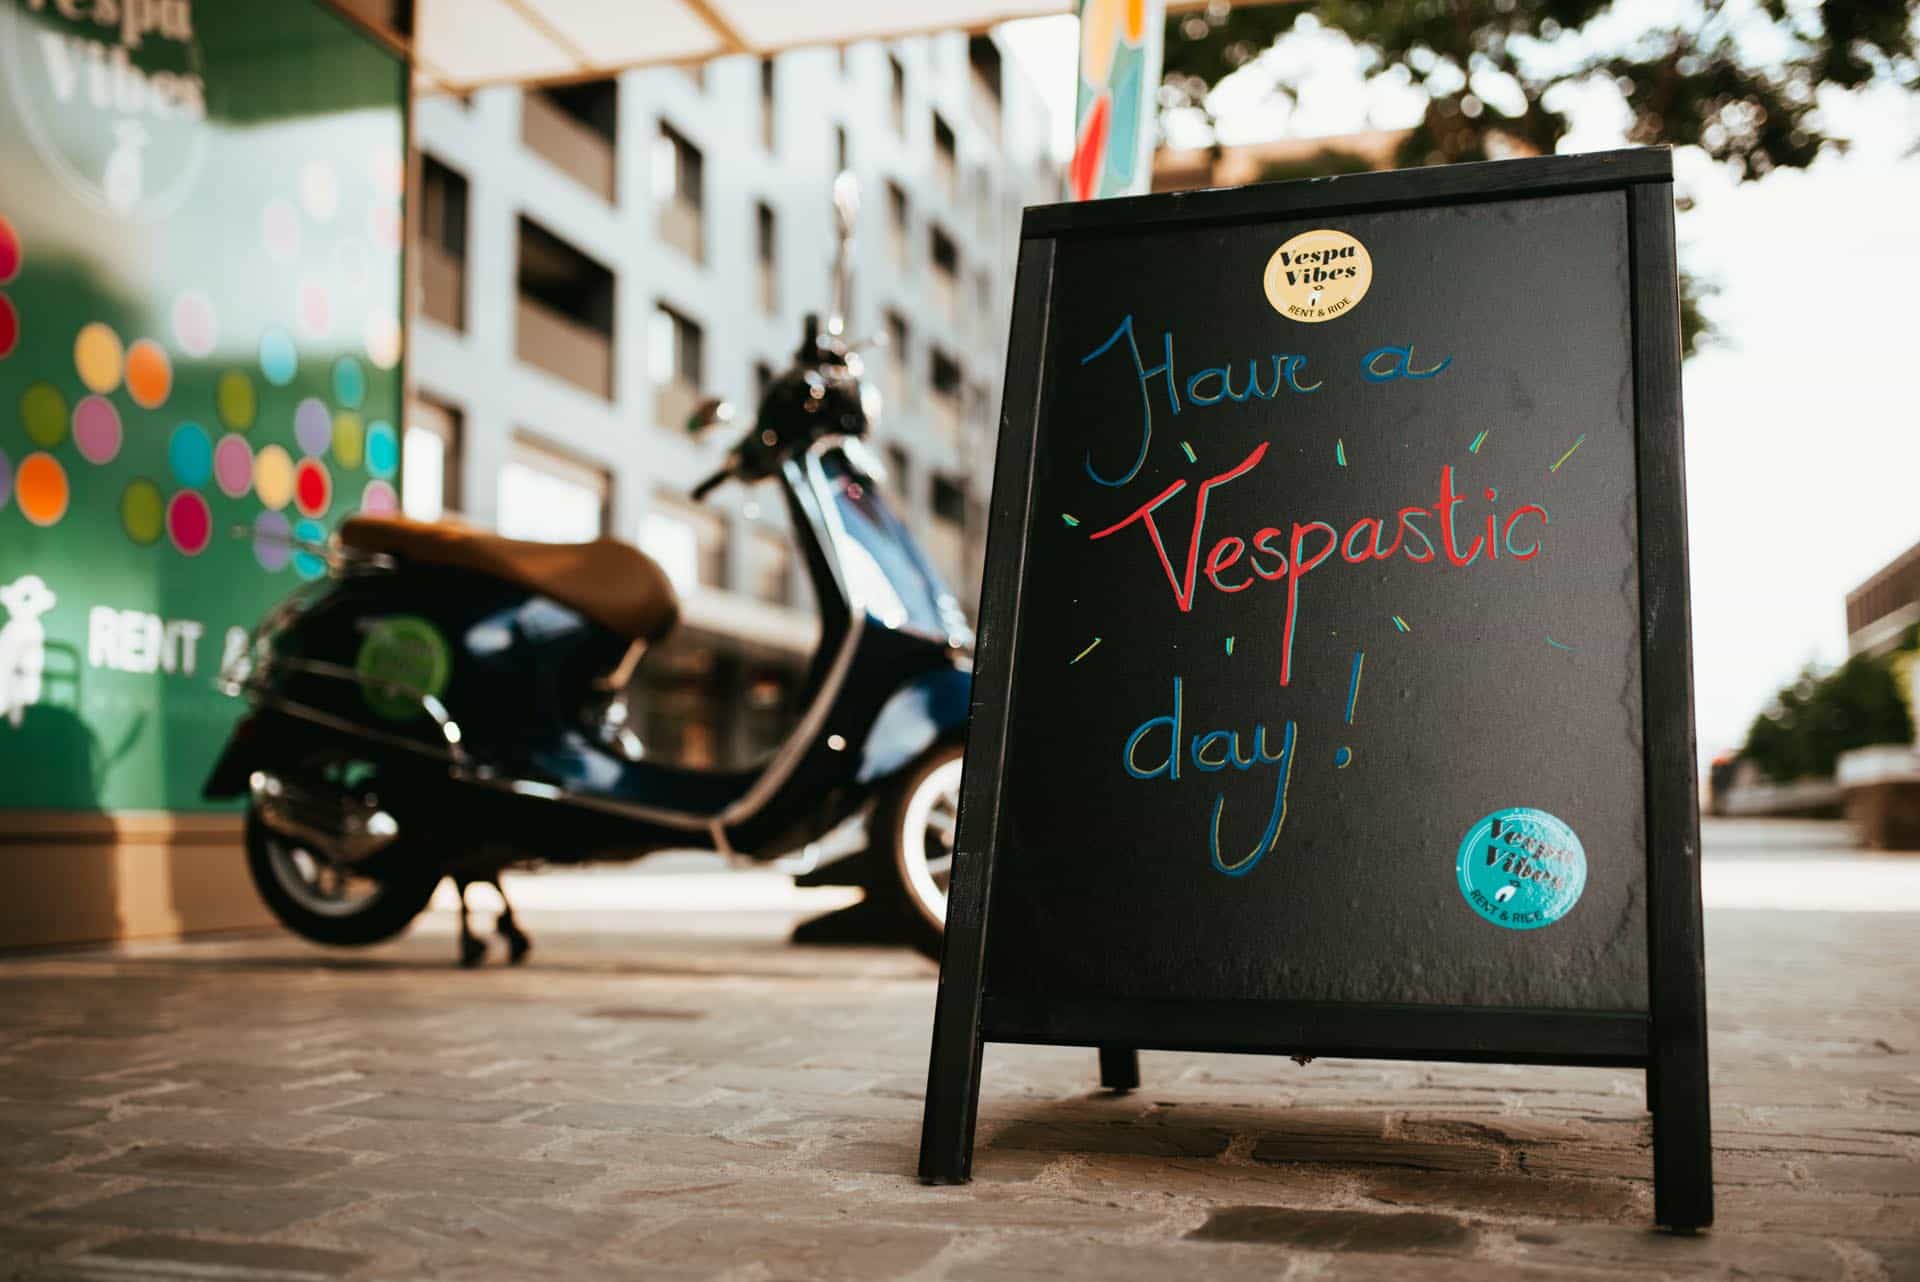 Vespa
Vibes
RENT &
Vespa
Vibes
RENT & RIDE
Have a
Vespastic
day!
Vespa
Vibes
RENT & RIDE